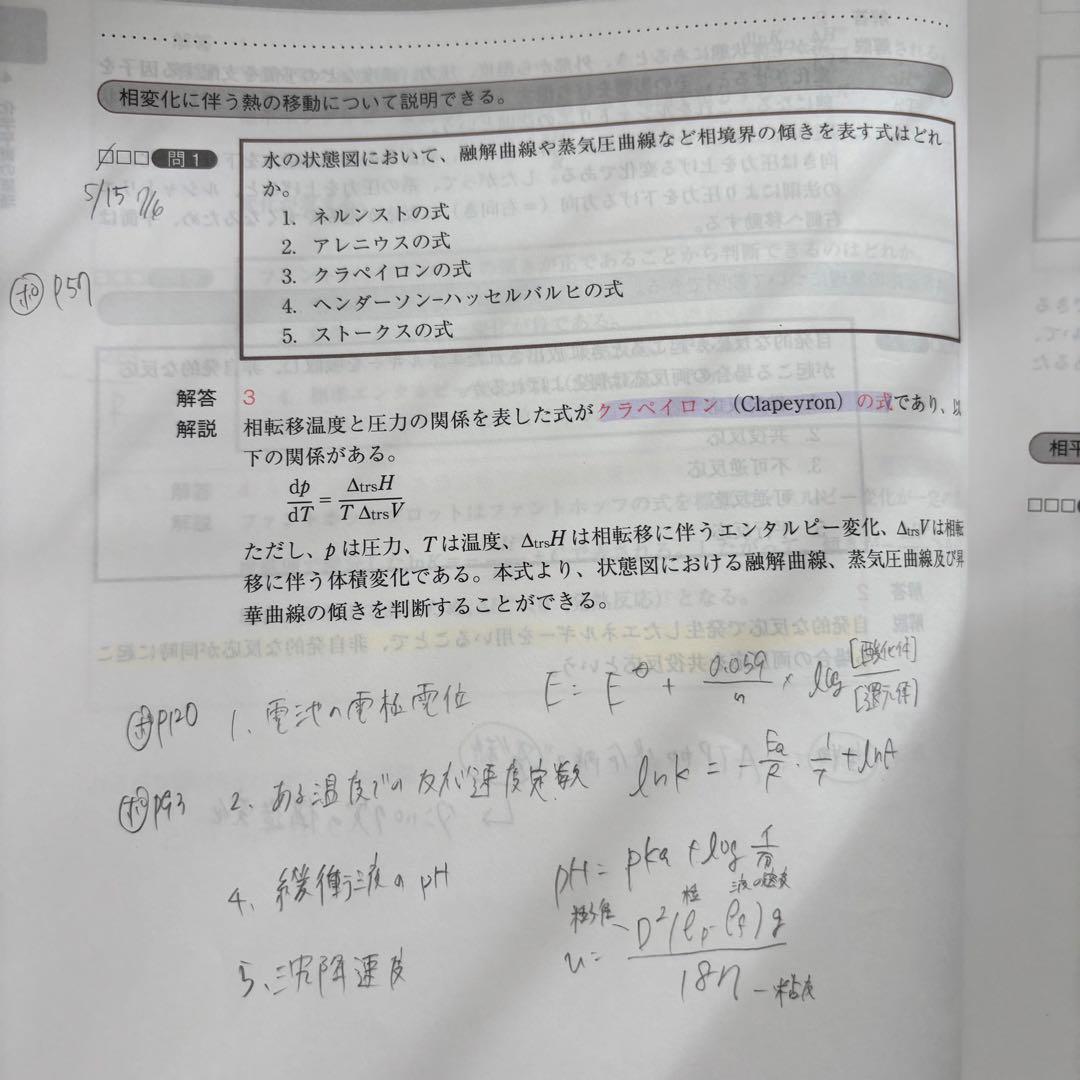 相変化に伴う熱の移動について説明できる。
□□□ 問1 水の状態図において、融解曲線や蒸気圧曲線など相境界の傾きを表す式はどれ
か。
5/15 7/6
1. ネルンストの式
2. アレニウスの式
3. クラペイロンの式
4. ヘンダーソン−ハッセルバルヒの式
5. ストークスの式
ホ p57
解答 3
解説 相転移温度と圧力の関係を表した式がクラペイロン（Clapeyron）の式であり、以
下の関係がある。
dp/dT = ΔtrsH/T ΔtrsV
ただし、pは圧力、Tは温度、ΔtrsHは相転移に伴うエンタルピー変化、ΔtrsVは相転
移に伴う体積変化である。本式より、状態図における融解曲線、蒸気圧曲線及び昇
華曲線の傾きを判断することができる。
ホ p120 1. 電池の電極電位 E = E⊖ + 0.059/n × log [酸化体]/[還元体]
ホ p93 2. ある温度での反応速度定数 lnk = −Ea/R・1/T + lnA
4. 緩衝液のpH pH = pKa + log イ/分
粒子径 粒 液の密度
5. 沈降速度 u = D²(ρp − ρf)g/18η 粘度
相平
□□□